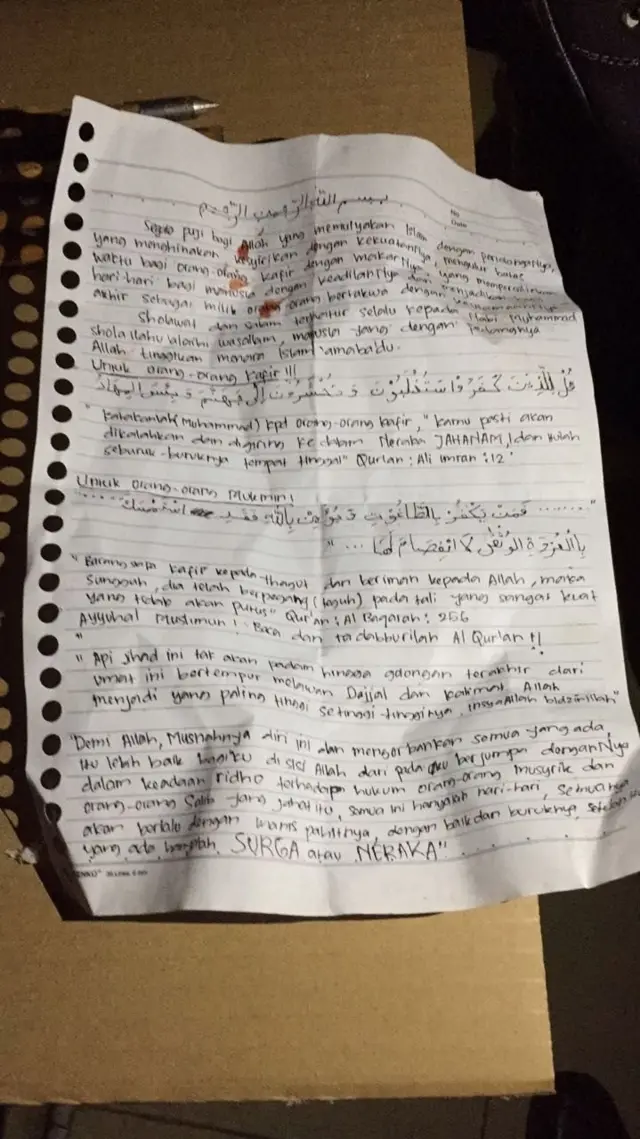 بسم الله الرحمن الرحيم
No
Date
Segala puji bagi Allah yang memulyakan Islam dengan pertolonganNya,
yang menghinakan kesyirikan dengan kekuatanNya, mengatur batas
waktu bagi orang-orang kafir dengan makarNya, yang mempergilirkan
hari-hari bagi manusia dengan keadilanNya dan menjadikan
akhir sebagai milik orang-orang bertakwa dengan
Sholawat dan salam tercurtur selalu kepada Nabi Muhammad
shola ilahu alaihi wasallam, manusia yang dengan pedangnya
Allah tinggikan menara Islam amaba'du.
Untuk orang-orang kafir !!!
قُلْ لِلَّذِينَ كَفَرُوا سَتُغْلَبُونَ وَتُحْشَرُونَ إِلَى جَهَنَّمَ وَبِئْسَ الْمِهَادُ
" Katakanlah (Muhammad) kpd orang-orang kafir, " kamu pasti akan
dikalahkan dan digiring ke dalam Neraka JAHANAM, dan itulah
seburuk-buruknya tempat tinggal" Qur'an : Ali Imran : 12
Untuk orang-orang Mukmin !
" ....... فَمَنْ يَكْفُرْ بِالطَّاغُوتِ وَيُؤْمِنْ بِاللَّهِ فَقَدِ اسْتَمْسَكَ
بِالْعُرْوَةِ الْوُثْقَى لَا انْفِصَامَ لَهَا ... "
" Barang siapa kafir kepada thagut dan beriman kepada Allah, maka
sungguh, dia telah berpegang (teguh) pada tali yang sangat kuat
yang tidak akan putus" Qur'an : Al Baqarah : 256
Ayyuhal Muslimun ! Baca dan tadabburilah Al Qur'an !!
"
" Api jihad ini tak akan padam hingga golongan terakhir dari
umat ini bertempur melawan Dajjal dan kalimat Allah
menjadi yang paling tinggi setinggi-tingginya, insyaAllah bidznillah"
"Demi Allah, Musnahnya diri ini dan mengorbankan semua yang ada,
itu lebih baik bagiku di sisi Allah dari pada aku berjumpa denganNya
dalam keadaan ridho terhadap hukum orang-orang musyrik dan
orang-orang Salib yang jahat itu, semua ini hanyalah hari-hari, semuanya
akan berlalu dengan manis pahitnya, dengan baik dan buruknya, setelah itu
yang ada hanyalah SURGA atau NERAKA" .......